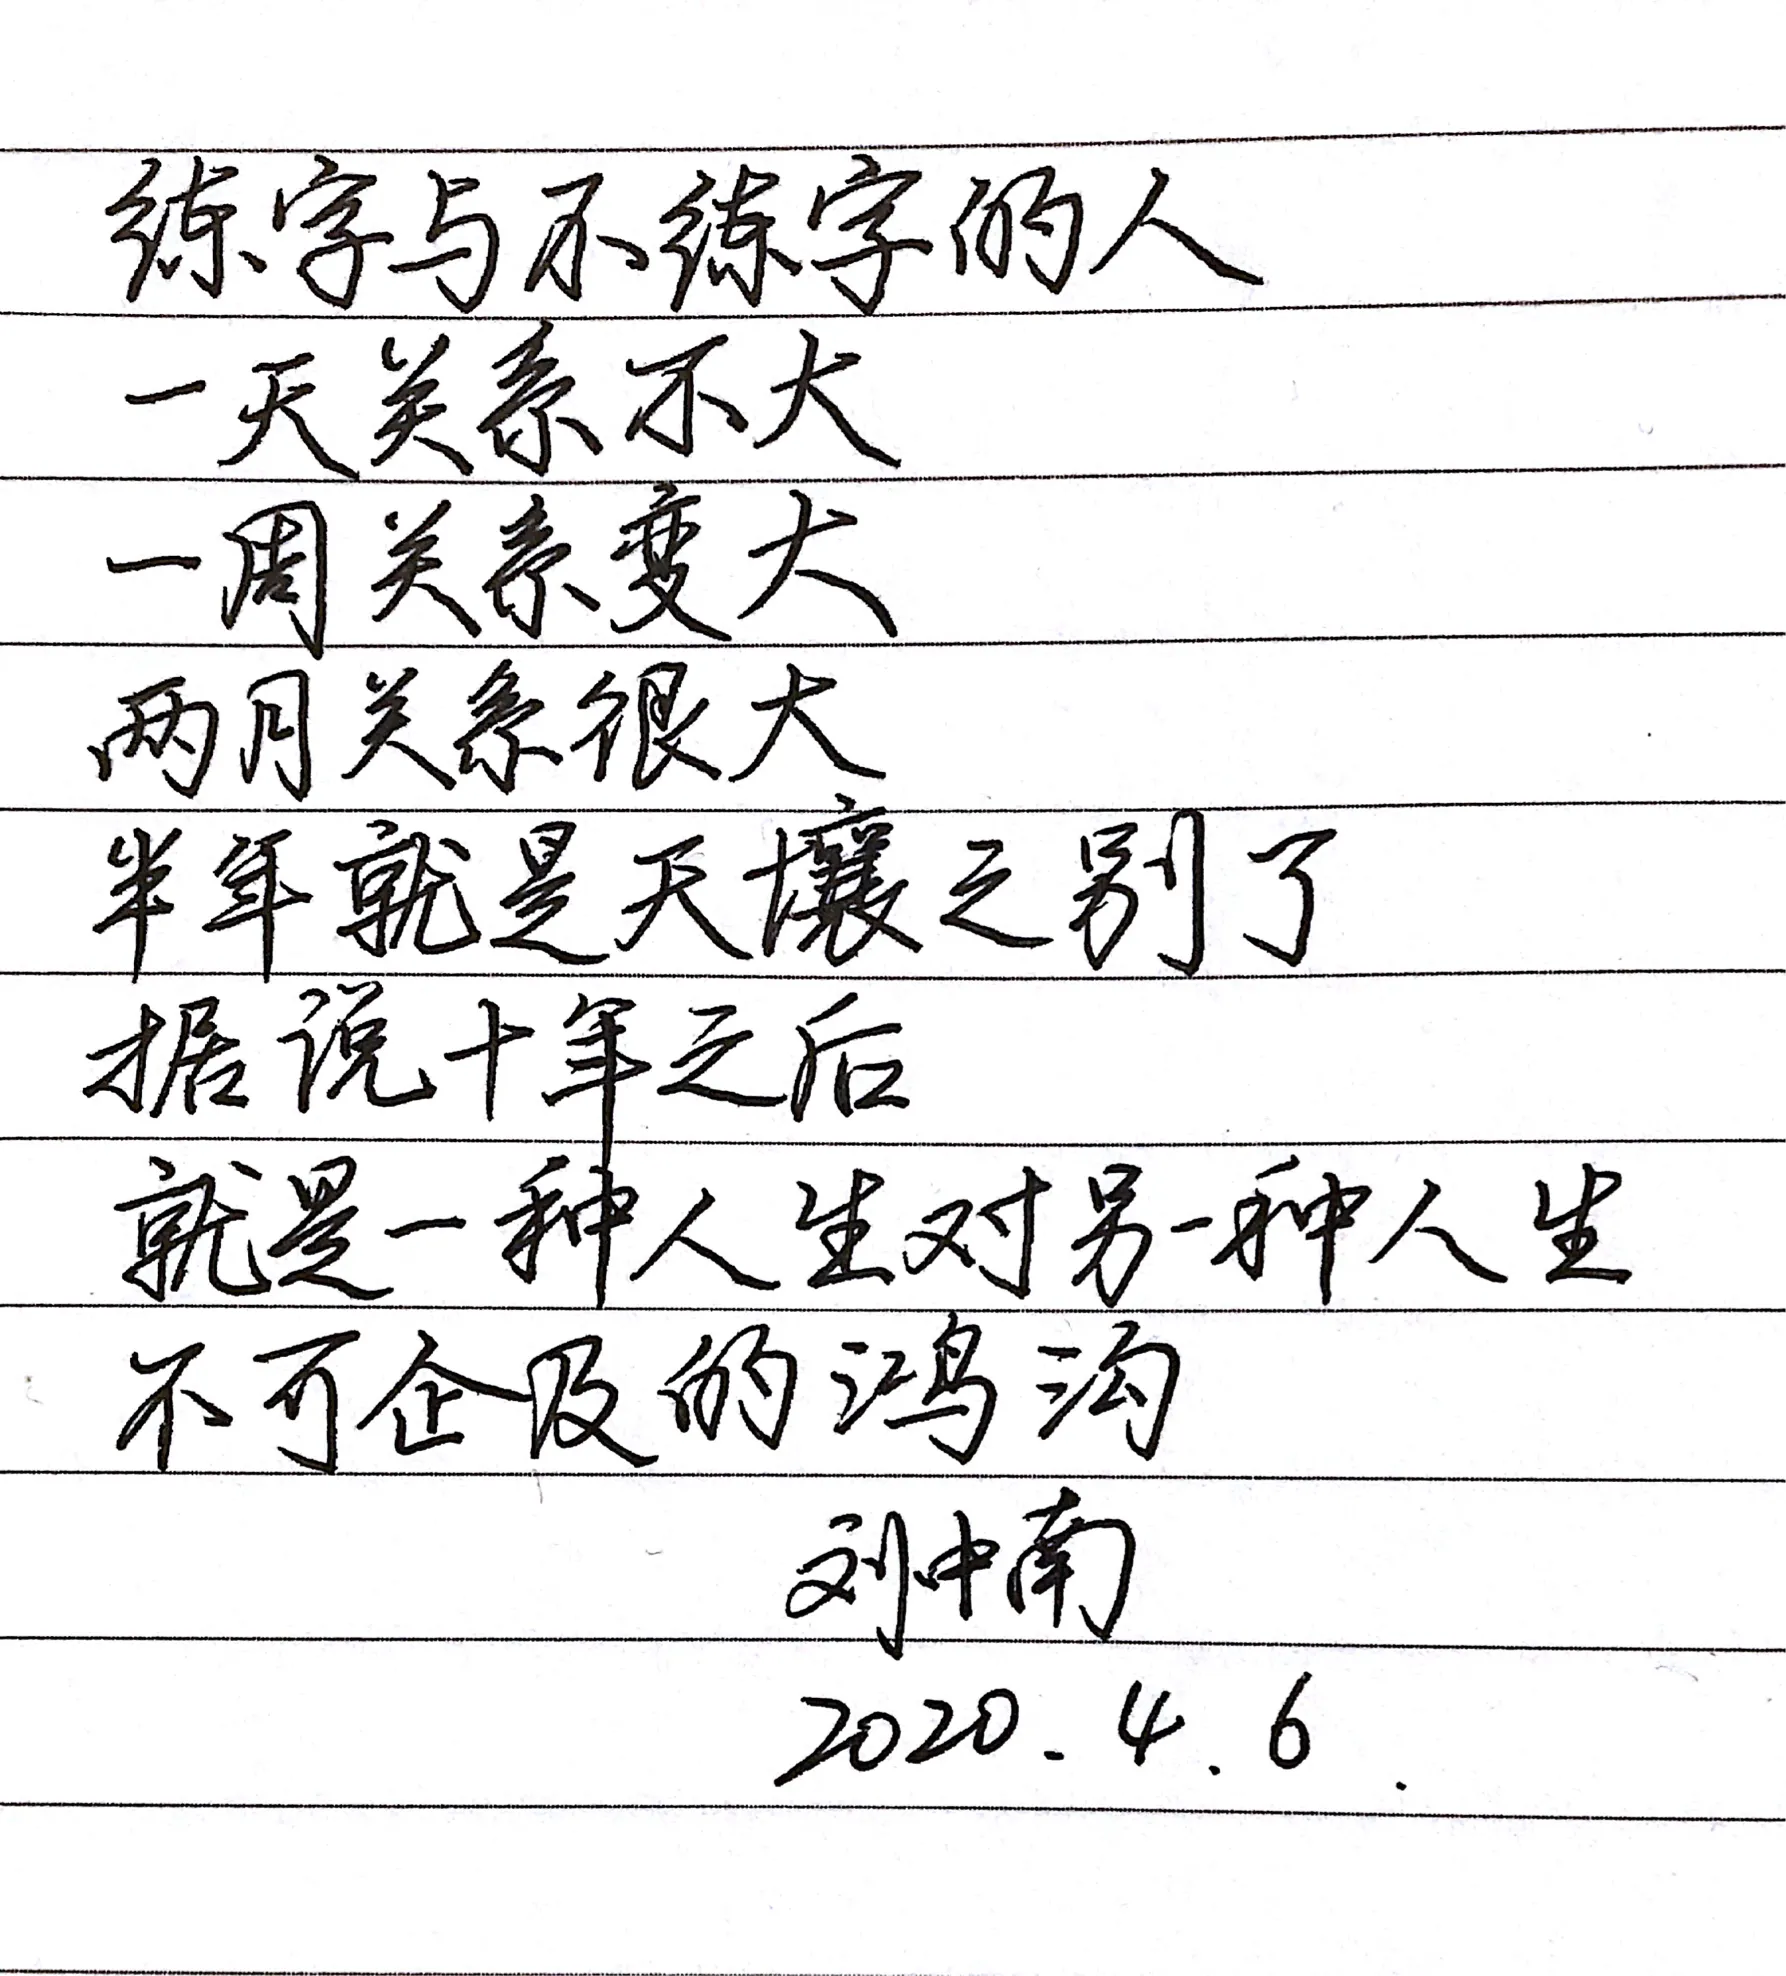 练字与不练字的人
一天关系不大
一周关系变大
两月关系很大
半年就是天壤之别了
据说十年之后
就是一种人生对另一种人生
不可企及的鸿沟
刘中南
2020.4.6.